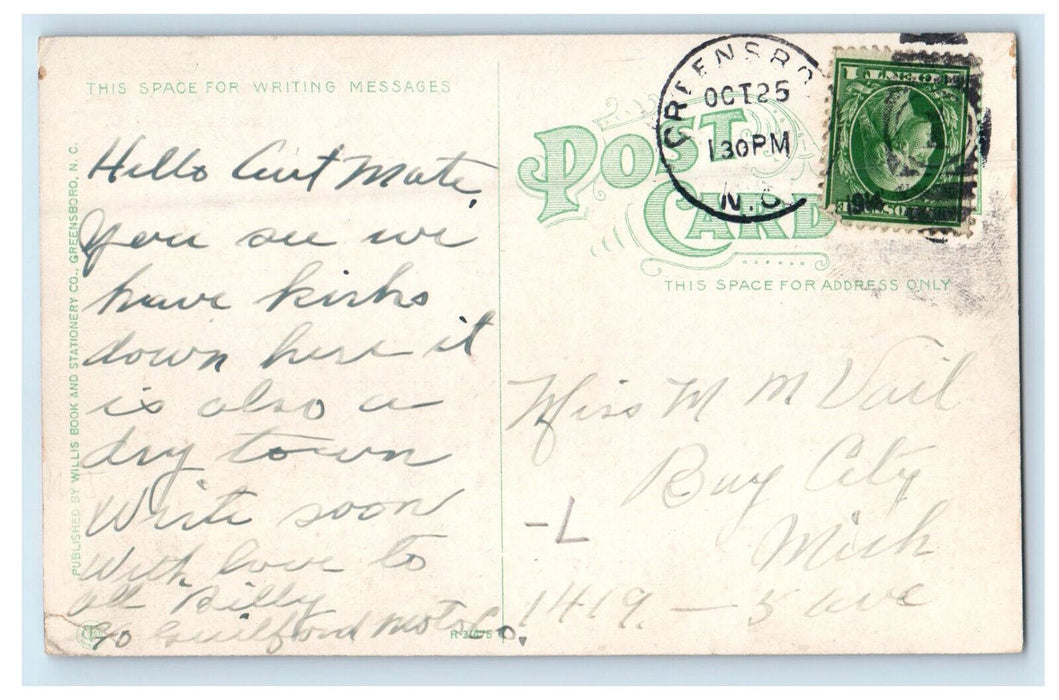 THIS SPACE FOR WRITING MESSAGES
Hello Aunt Mate,
You see we
have kirks
down here it
is also a
dry town
Write soon
With love to
all Billy
c/o Guilford Motor Co.
PUBLISHED BY WILLIS BOOK AND STATIONERY CO., GREENSBORO, N. C.
POST CARD
GREENSBO
OCT 25
1 30 PM
N.C.
THIS SPACE FOR ADDRESS ONLY
Miss M M Vail
Bay City
Mich
-L
1419 - 5 ave